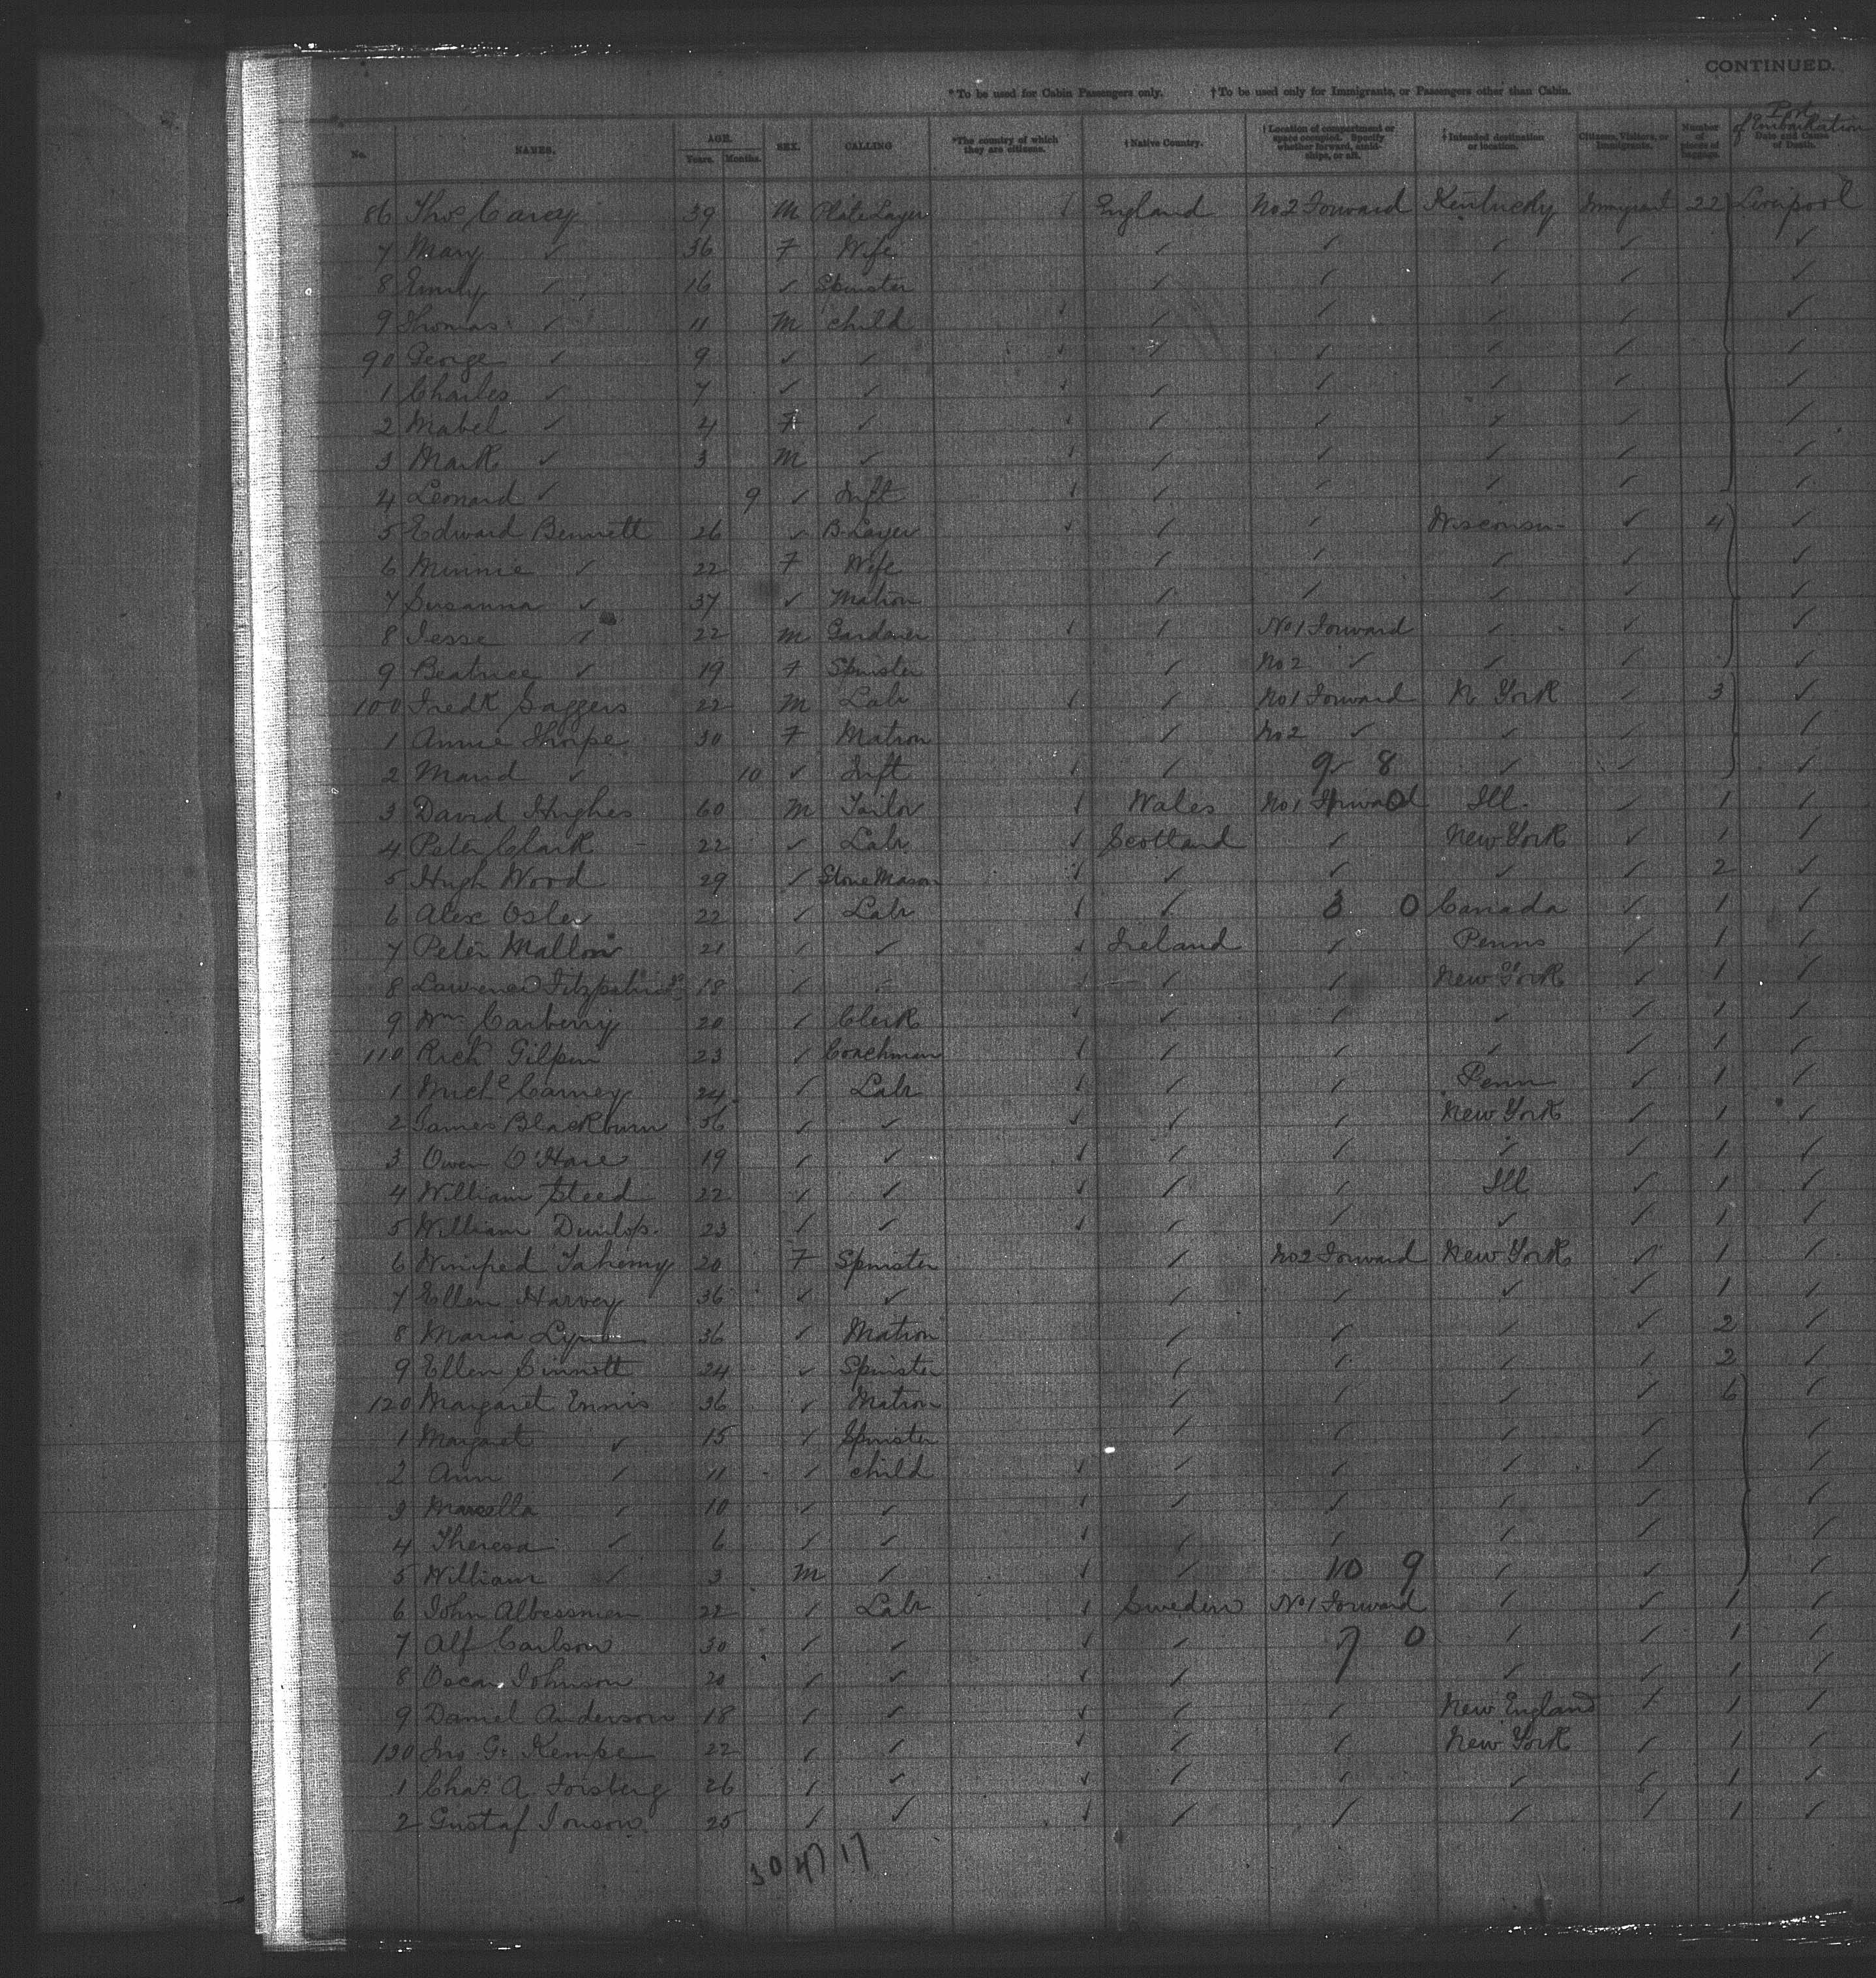 CONTINUED.
*To be used for Cabin Passengers only. †To be used only for Immigrants, or Passengers other than Cabin.
Port of Embarkation
No. NAMES. AGE. Years. Months. SEX. CALLING *The country of which they are citizens. †Native Country. †Location of compartment or space occupied. Specify whether forward, amidships, or aft. Intended destination or location. Citizens, Visitors, or Immigrants. Number of pieces of baggage. Date and Cause of Death.
86 Thos Carey 39 M Plate Layer ✓ England No 2 Forward Kentucky Immigrant 22 Liverpool
7 Mary ✓ 36 F Wife ✓ ✓ ✓ ✓ ✓
8 Emily ✓ 16 ✓ Spinster ✓ ✓ ✓ ✓ ✓
9 Thomas ✓ 11 M child ✓ ✓ ✓ ✓ ✓ ✓
90 George ✓ 9 ✓ ✓ ✓ ✓ ✓ ✓ ✓ ✓
1 Charles ✓ 7 ✓ ✓ ✓ ✓ ✓ ✓ ✓ ✓
2 Mabel ✓ 4 F ✓ ✓ ✓ ✓ ✓ ✓ ✓
3 Mark ✓ 3 M ✓ ✓ ✓ ✓ ✓ ✓ ✓
4 Leonard ✓ 9 ✓ Inft ✓ ✓ ✓ ✓ ✓ ✓
5 Edward Bennett 26 ✓ B. Layer ✓ ✓ ✓ Wisconsin ✓ 4 ✓
6 Minnie ✓ 22 F Wife ✓ ✓ ✓ ✓ ✓
7 Susanna ✓ 37 ✓ Matron ✓ ✓ ✓ ✓ ✓
8 Jesse ✓ 22 M Gardener ✓ ✓ No 1 Forward ✓ ✓ ✓
9 Beatrice ✓ 19 F Spinster ✓ No 2 ✓ ✓ ✓ ✓
100 Fredk Saggers 22 M Labr ✓ ✓ No 1 Forward N York ✓ 3 ✓
1 Annie Thorpe 30 F Matron ✓ No 2 ✓ ✓ ✓ ✓
2 Maud ✓ 10 ✓ Inft ✓ ✓ 9 8 ✓ ✓ ✓
3 David Hughes 60 M Tailor ✓ Wales No 1 Forward Ill. ✓ 1 ✓
4 Peter Clark 22 ✓ Labr ✓ Scotland ✓ New York ✓ 1 ✓
5 Hugh Wood 29 ✓ Stone Mason ✓ ✓ ✓ ✓ ✓ 2 ✓
6 Alex Osler 22 ✓ Labr ✓ ✓ 3 0 Canada ✓ 1 ✓
7 Peter Mallon 21 ✓ ✓ ✓ Ireland ✓ Penns ✓ 1 ✓
8 Lawrence Fitzpatrick 18 ✓ ✓ ✓ ✓ ✓ New York ✓ 1 ✓
9 Wm Carberry 20 ✓ Clerk ✓ ✓ ✓ ✓ ✓ 1 ✓
110 Rich Gilpin 23 ✓ Coachman ✓ ✓ ✓ ✓ ✓ 1 ✓
1 Michl Carney 24 ✓ Labr ✓ ✓ ✓ Penn ✓ 1 ✓
2 James Blackburn 36 ✓ ✓ ✓ ✓ ✓ New York ✓ 1 ✓
3 Owen O'Hare 19 ✓ ✓ ✓ ✓ ✓ ✓ ✓ 1 ✓
4 William Steed 22 ✓ ✓ ✓ ✓ ✓ Ill ✓ 1 ✓
5 William Dunlop. 23 ✓ ✓ ✓ ✓ ✓ ✓ ✓ 1 ✓
6 Winifred 20 F Spinster ✓ No 2 Forward New York ✓ 1 ✓
7 Ellen Harvey 36 ✓ ✓ ✓ ✓ ✓ ✓ 1 ✓
8 Maria 36 ✓ Matron ✓ ✓ ✓ ✓ 2 ✓
9 Ellen Cinnott 24 ✓ Spinster ✓ ✓ ✓ ✓ 2 ✓
120 Margaret Ennis 36 ✓ Matron ✓ ✓ ✓ ✓ 6 ✓
1 Margaret ✓ 15 ✓ Spinster ✓ ✓ ✓ ✓ ✓
2 Ann ✓ 11 ✓ child ✓ ✓ ✓ ✓ ✓ ✓
3 Marcella ✓ 10 ✓ ✓ ✓ ✓ ✓ ✓ ✓ ✓
4 Theresa ✓ 6 ✓ ✓ ✓ ✓ ✓ ✓ ✓ ✓
5 William ✓ 3 M ✓ ✓ ✓ 10 9 ✓ ✓ ✓
6 John 22 ✓ Labr ✓ Sweden No 1 Forward ✓ ✓ 1 ✓
7 Alf Carlson 30 ✓ ✓ ✓ ✓ 7 0 ✓ ✓ 1 ✓
8 Oscar Johnson 20 ✓ ✓ ✓ ✓ ✓ ✓ 1 ✓
9 Daniel Anderson 18 ✓ ✓ ✓ ✓ ✓ New England ✓ 1 ✓
130 Jno. G. Kempe 22 ✓ ✓ ✓ ✓ ✓ New York ✓ 1 ✓
1 Chas. A Forsberg 26 ✓ ✓ ✓ ✓ ✓ ✓ ✓ 1 ✓
2 Gustaf Jonson 25 ✓ ✓ ✓ ✓ ✓ ✓ ✓ 1 ✓
30 47 17